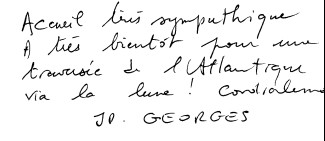 Accueil très sympathique
A très bientôt pour une
traversée de l'Atlantique
via la lune ! Cordialeme
JP. GEORGES